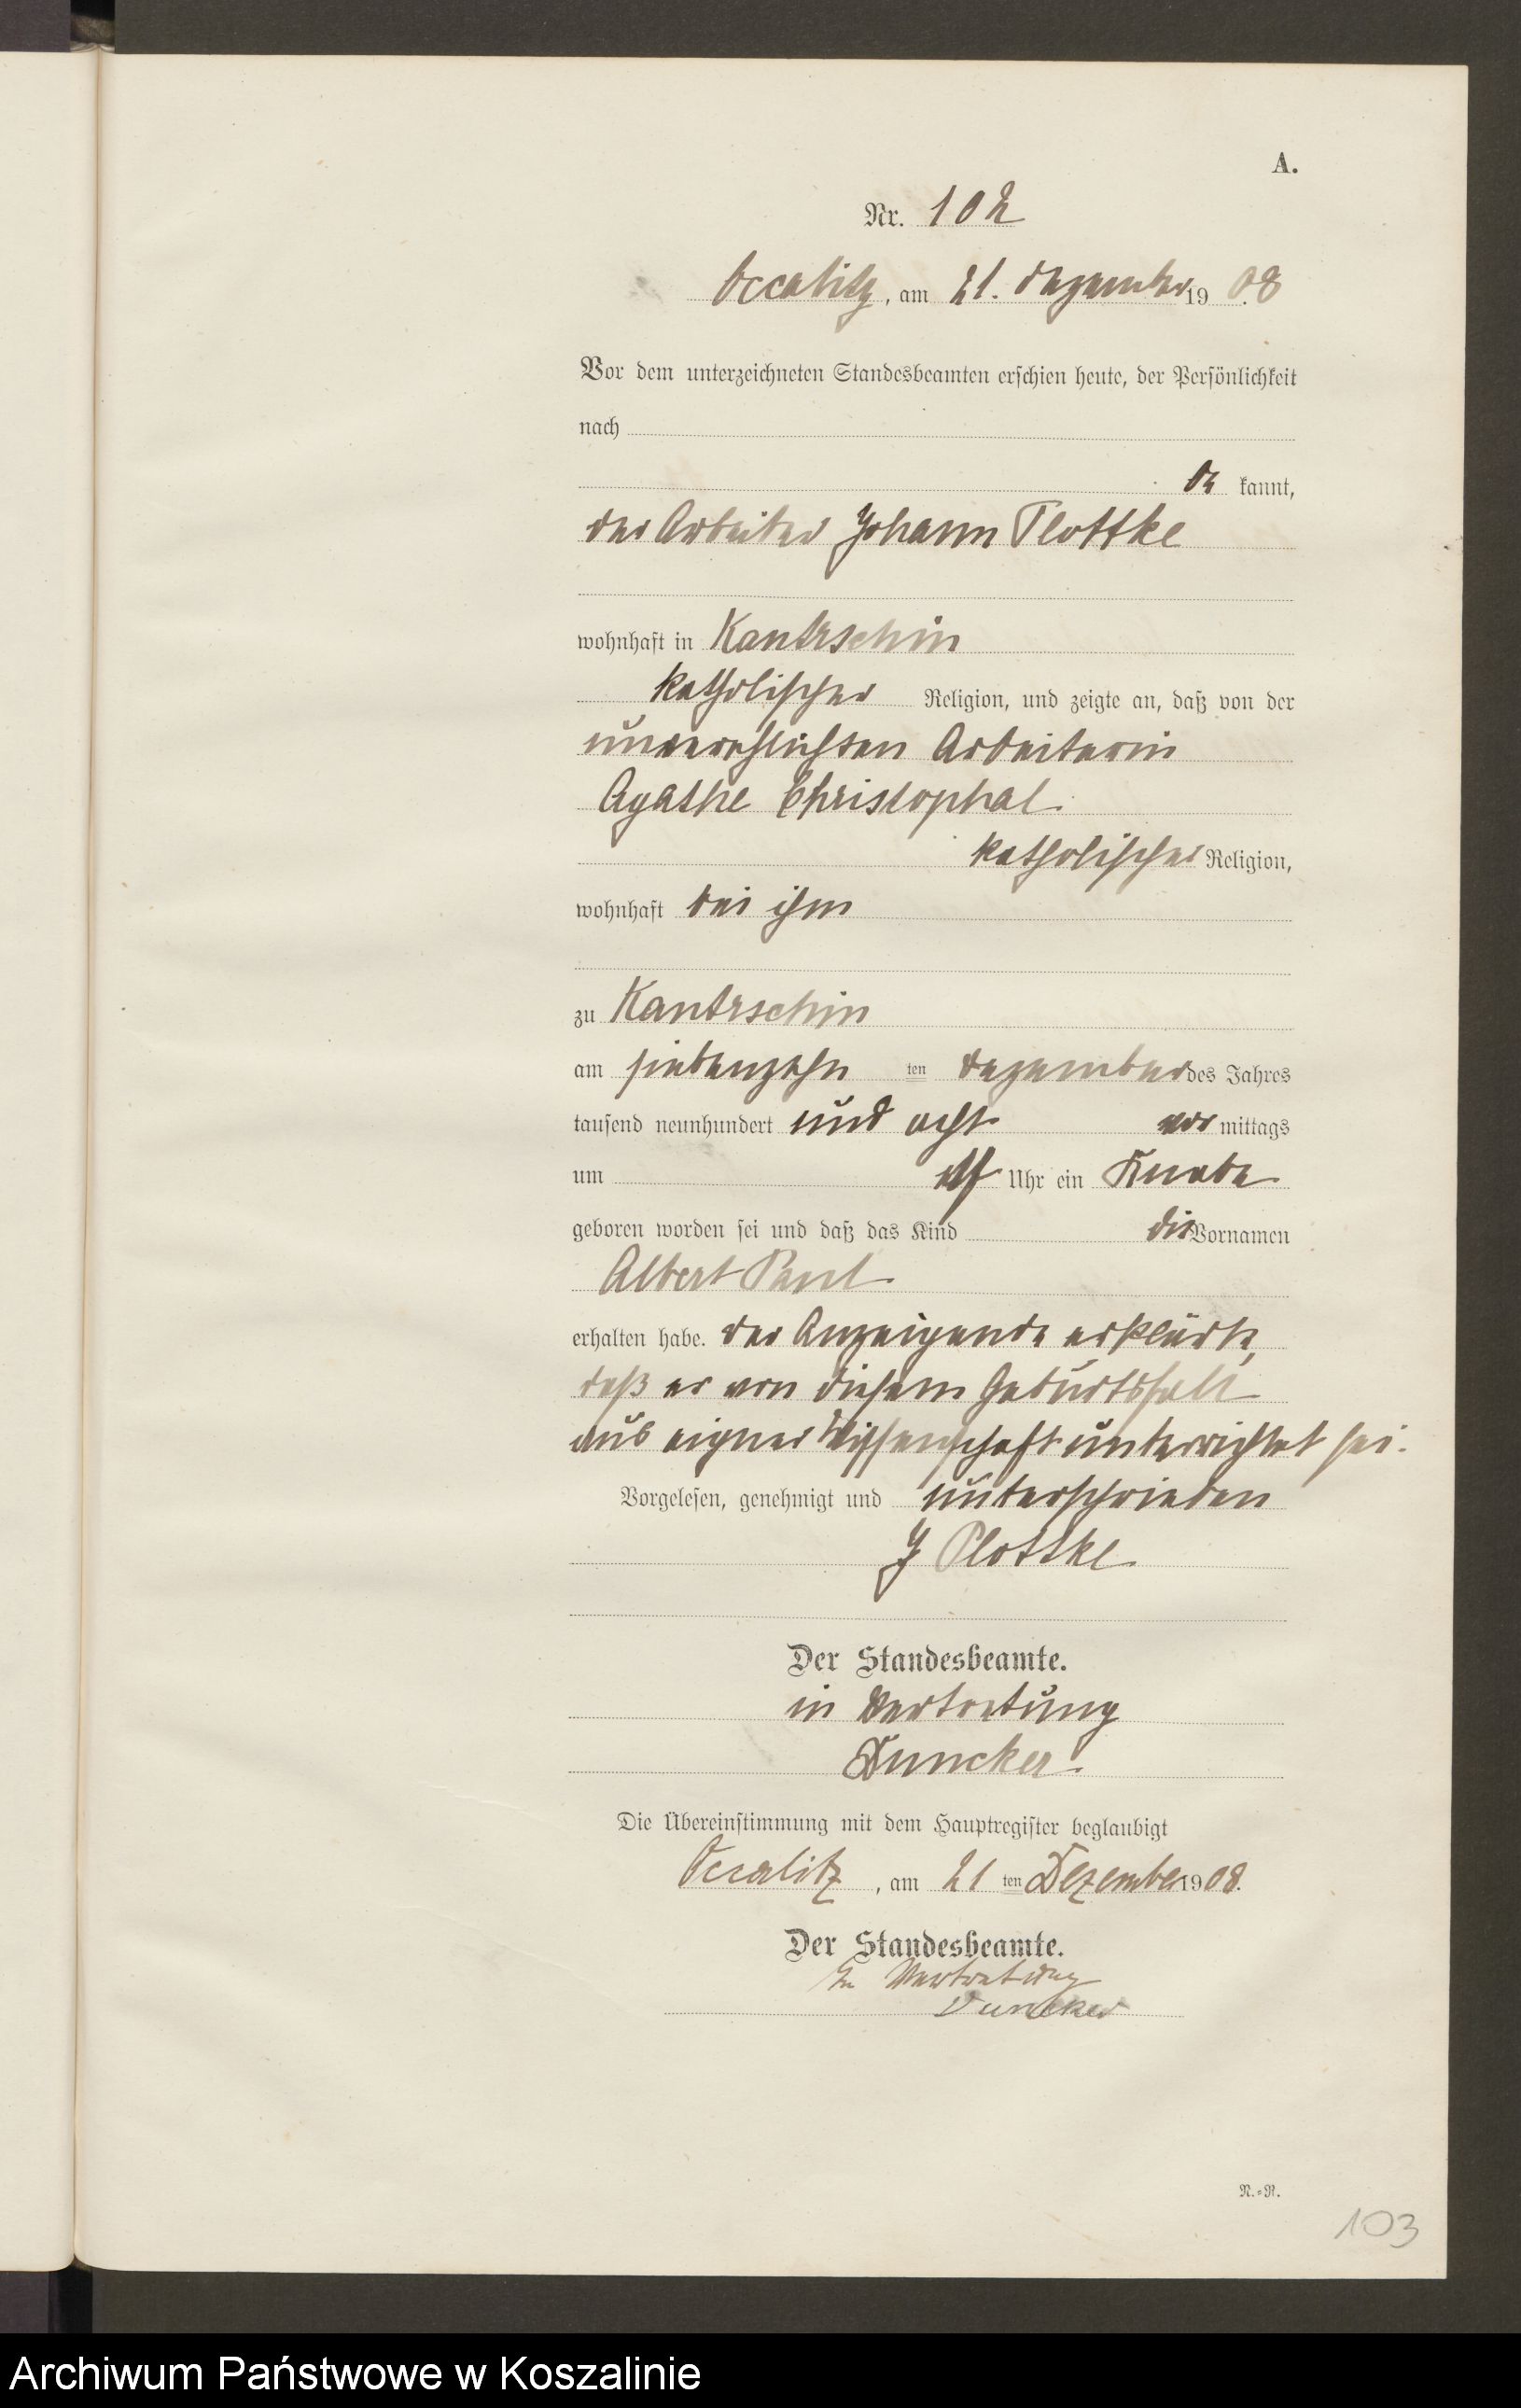 A.
Nr. 102
Occalitz, am 21. Dezember 1908
Vor dem unterzeichneten Standesbeamten erschien heute, der Persönlichkeit
nach
be kannt,
der Arbeiter Johann Plottke
wohnhaft in Kantrschin
katholischer Religion, und zeigte an, daß von der
unverehlichten Arbeiterin
Agathe Christophal
katholischer Religion,
wohnhaft bei ihm
zu Kantrschin
am siebenzehn ten Dezember des Jahres
tausend neunhundert und acht vor mittags
um elf Uhr ein Knabe
geboren worden sei und daß das Kind die Vornamen
Albert Paul
erhalten habe. Der Anzeigende erklärte,
daß er von diesem Geburtsfall
aus eigner Wissenschaft unterrichtet sei.
Vorgelesen, genehmigt und unterschrieben
J Plottke
Der Standesbeamte.
in Vertretung
Duncker
Die Übereinstimmung mit dem Hauptregister beglaubigt
Occalitz, am 21 ten Dezember 1908.
Der Standesbeamte.
In Vertretung
Duncker
N.=R.
103
Archiwum Państwowe w Koszalinie